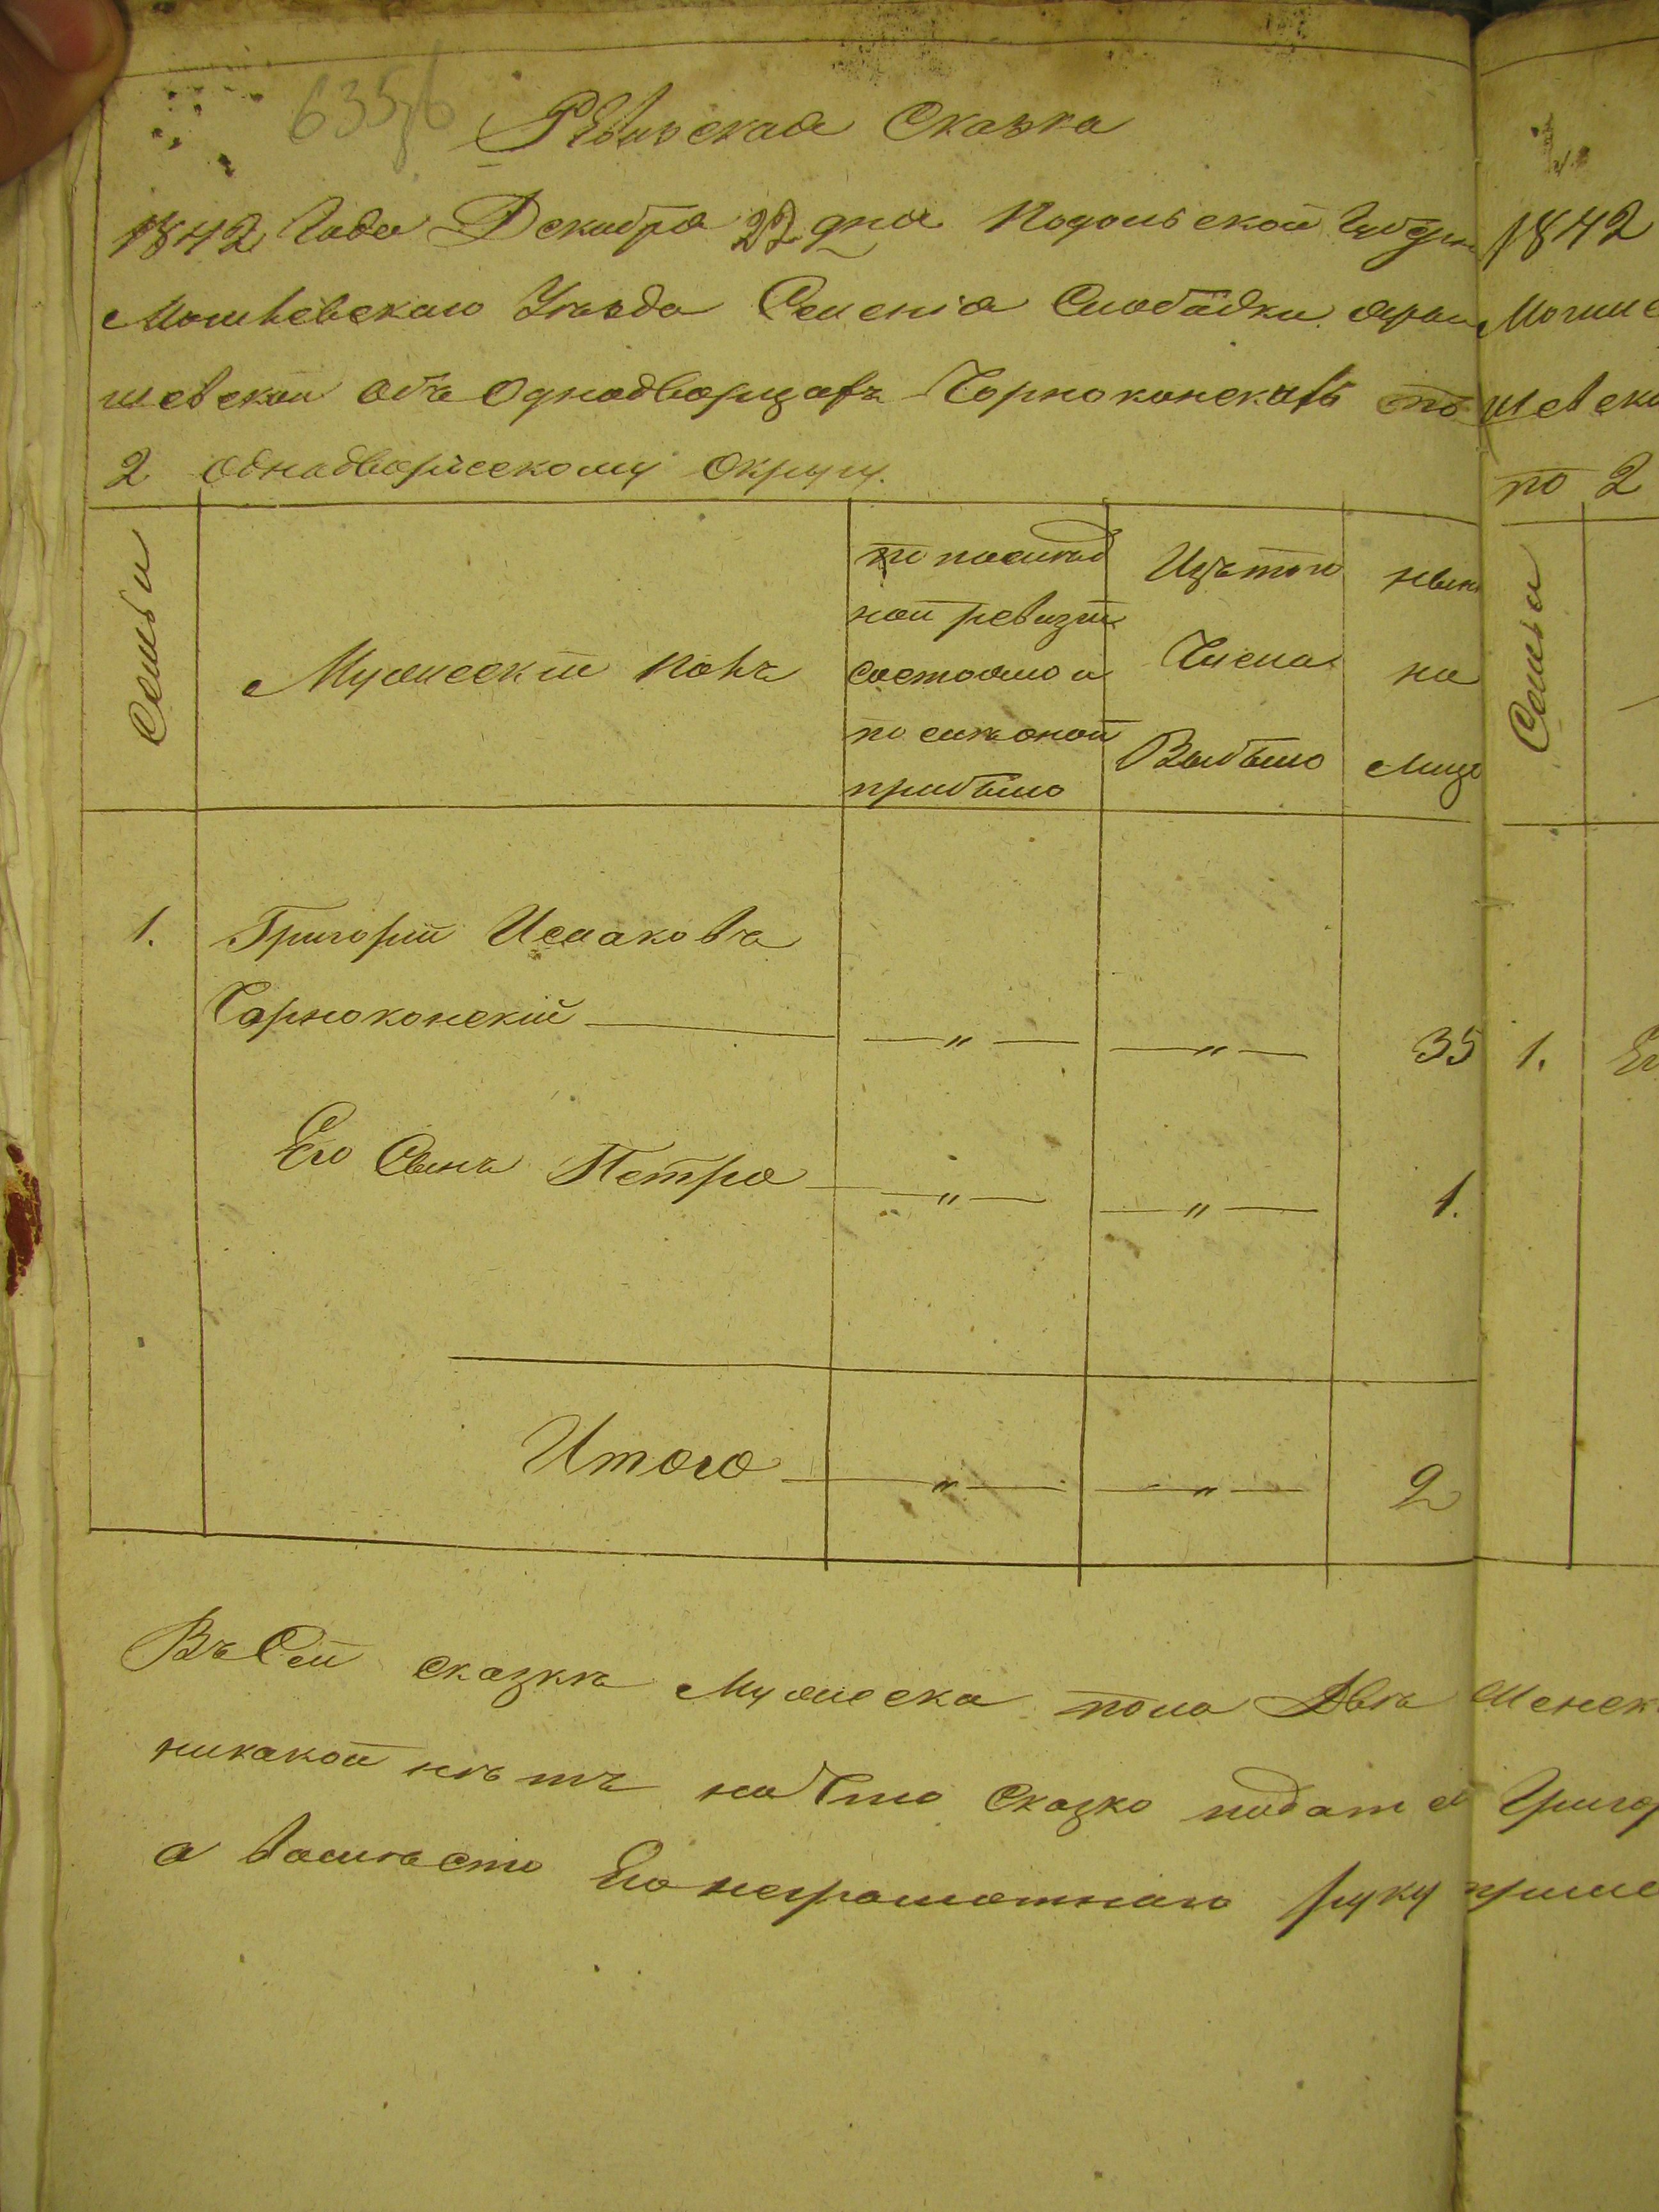 635 б
Ревизская Сказка
1842 Года Декабря 22 дня Подольской Губерн
Могилевскаго Уезда Селенія Слободки
шевской Объ Однодворцахъ Чорноконскихъ по
2 однадворческому Округу.
Семьи
Мужескій полъ
по послед
ней ревизіи
состояло и
после оной
прибыло
Изъ того
Числа
Выбыло
ныне
на
лицо
1. Григорій Исааковъ
Чорноконскій — „ — — „ — 35
Его Сынъ Петро — „ — — „ — 1.
Итого — „ — — „ — 2
Въ Сей сказкѣ Мужеска пола Двѣ
никакой нѣтъ на Сию Сказко подател
а вместо Его неграмотнаго руку
1842
Могиле
шевско
по 2
Семьи
1. Ег
женск
Григор
приле